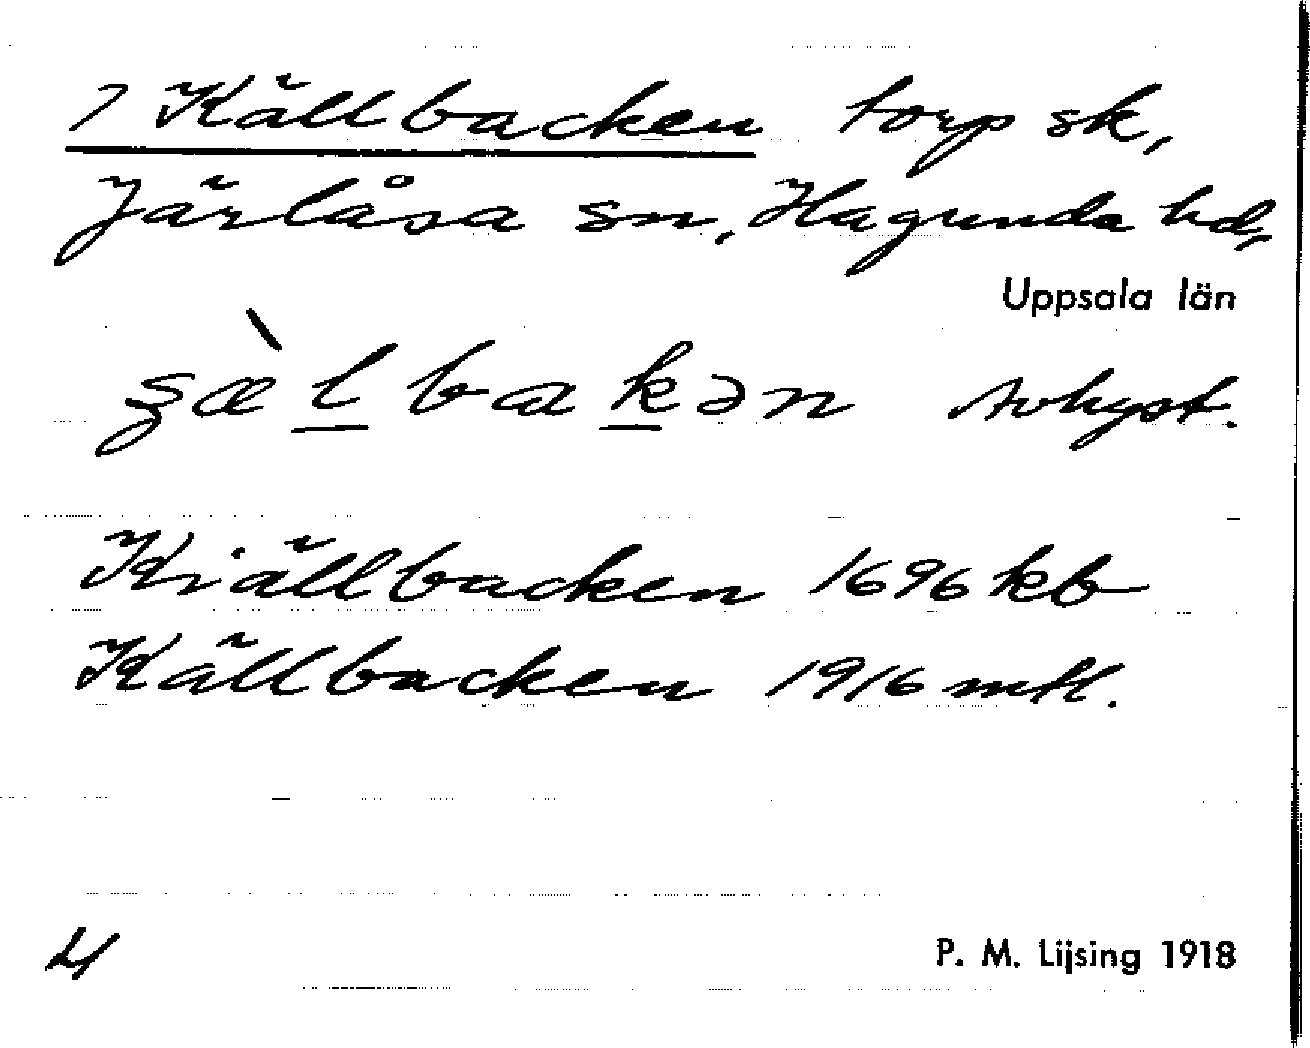 7 Källbacken torp sk,
Järlåsa sn, Hagunda hd,
Uppsala län
ʂæ̀lbakən
Kiällbacken 1696 kb
Källbacken 1916 mfl.
4
P. M. Lijsing 1918